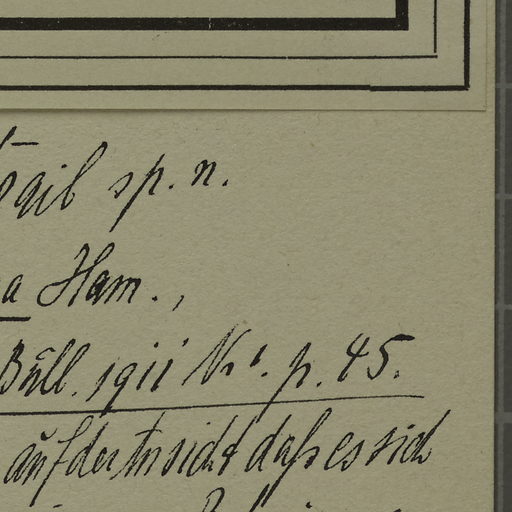 sp. n.
a Ham.,
Büll. 1911 Nr 1. p. 45.
auf der Insicht daß es sich